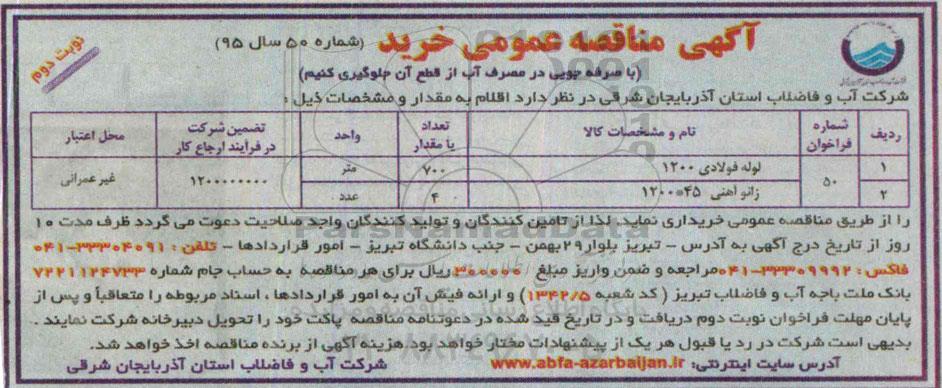 آگهی مناقصه عمومی خرید (شماره ۵۰ سال ۹۵)
نوبت دوم
(با صرفه جویی در مصرف آب از قطع آن جلوگیری کنیم)
شرکت آب و فاضلاب استان آذربایجان شرقی در نظر دارد اقلام به مقدار و مشخصات ذیل :
ردیف شماره فراخوان نام و مشخصات کالا تعداد یا مقدار واحد تضمین شرکت در فرآیند ارجاع کار محل اعتبار
۱ ۵۰ لوله فولادی ۱۲۰۰ ۷۰۰ متر ۱۲۰۰۰۰۰۰۰۰ غیر عمرانی
۲ زانو آهنی ۴۵*۱۲۰۰ ۴ عدد
را از طریق مناقصه عمومی خریداری نماید. لذا از تامین کنندگان و تولید کنندگان واجد صلاحیت دعوت می گردد ظرف مدت ۱۰
روز از تاریخ درج آگهی به آدرس – تبریز بلوار ۲۹ بهمن – جنب دانشگاه تبریز – امور قراردادها – تلفن : ۳۳۳۰۴۰۹۱-۰۴۱
فاکس : ۳۳۳۰۹۹۹۲-۰۴۱ مراجعه و ضمن واریز مبلغ ۳۰۰۰۰۰ ریال برای هر مناقصه به حساب جام شماره ۷۲۲۱۱۲۴۷۳۳
بانک ملت باجه آب و فاضلاب تبریز ( کد شعبه ۱۳۴۲/۵) و ارائه فیش آن به امور قراردادها ، اسناد مربوطه را متعاقباً و پس از
پایان مهلت فراخوان نوبت دوم دریافت و در تاریخ قید شده در دعوتنامه مناقصه پاکت خود را تحویل دبیرخانه شرکت نمایند .
بدیهی است شرکت در رد یا قبول هر یک از پیشنهادات مختار خواهد بود. هزینه آگهی از برنده مناقصه اخذ خواهد شد.
آدرس سایت اینترنتی: www.abfa-azarbaijan.ir شرکت آب و فاضلاب استان آذربایجان شرقی
ParsNamadData